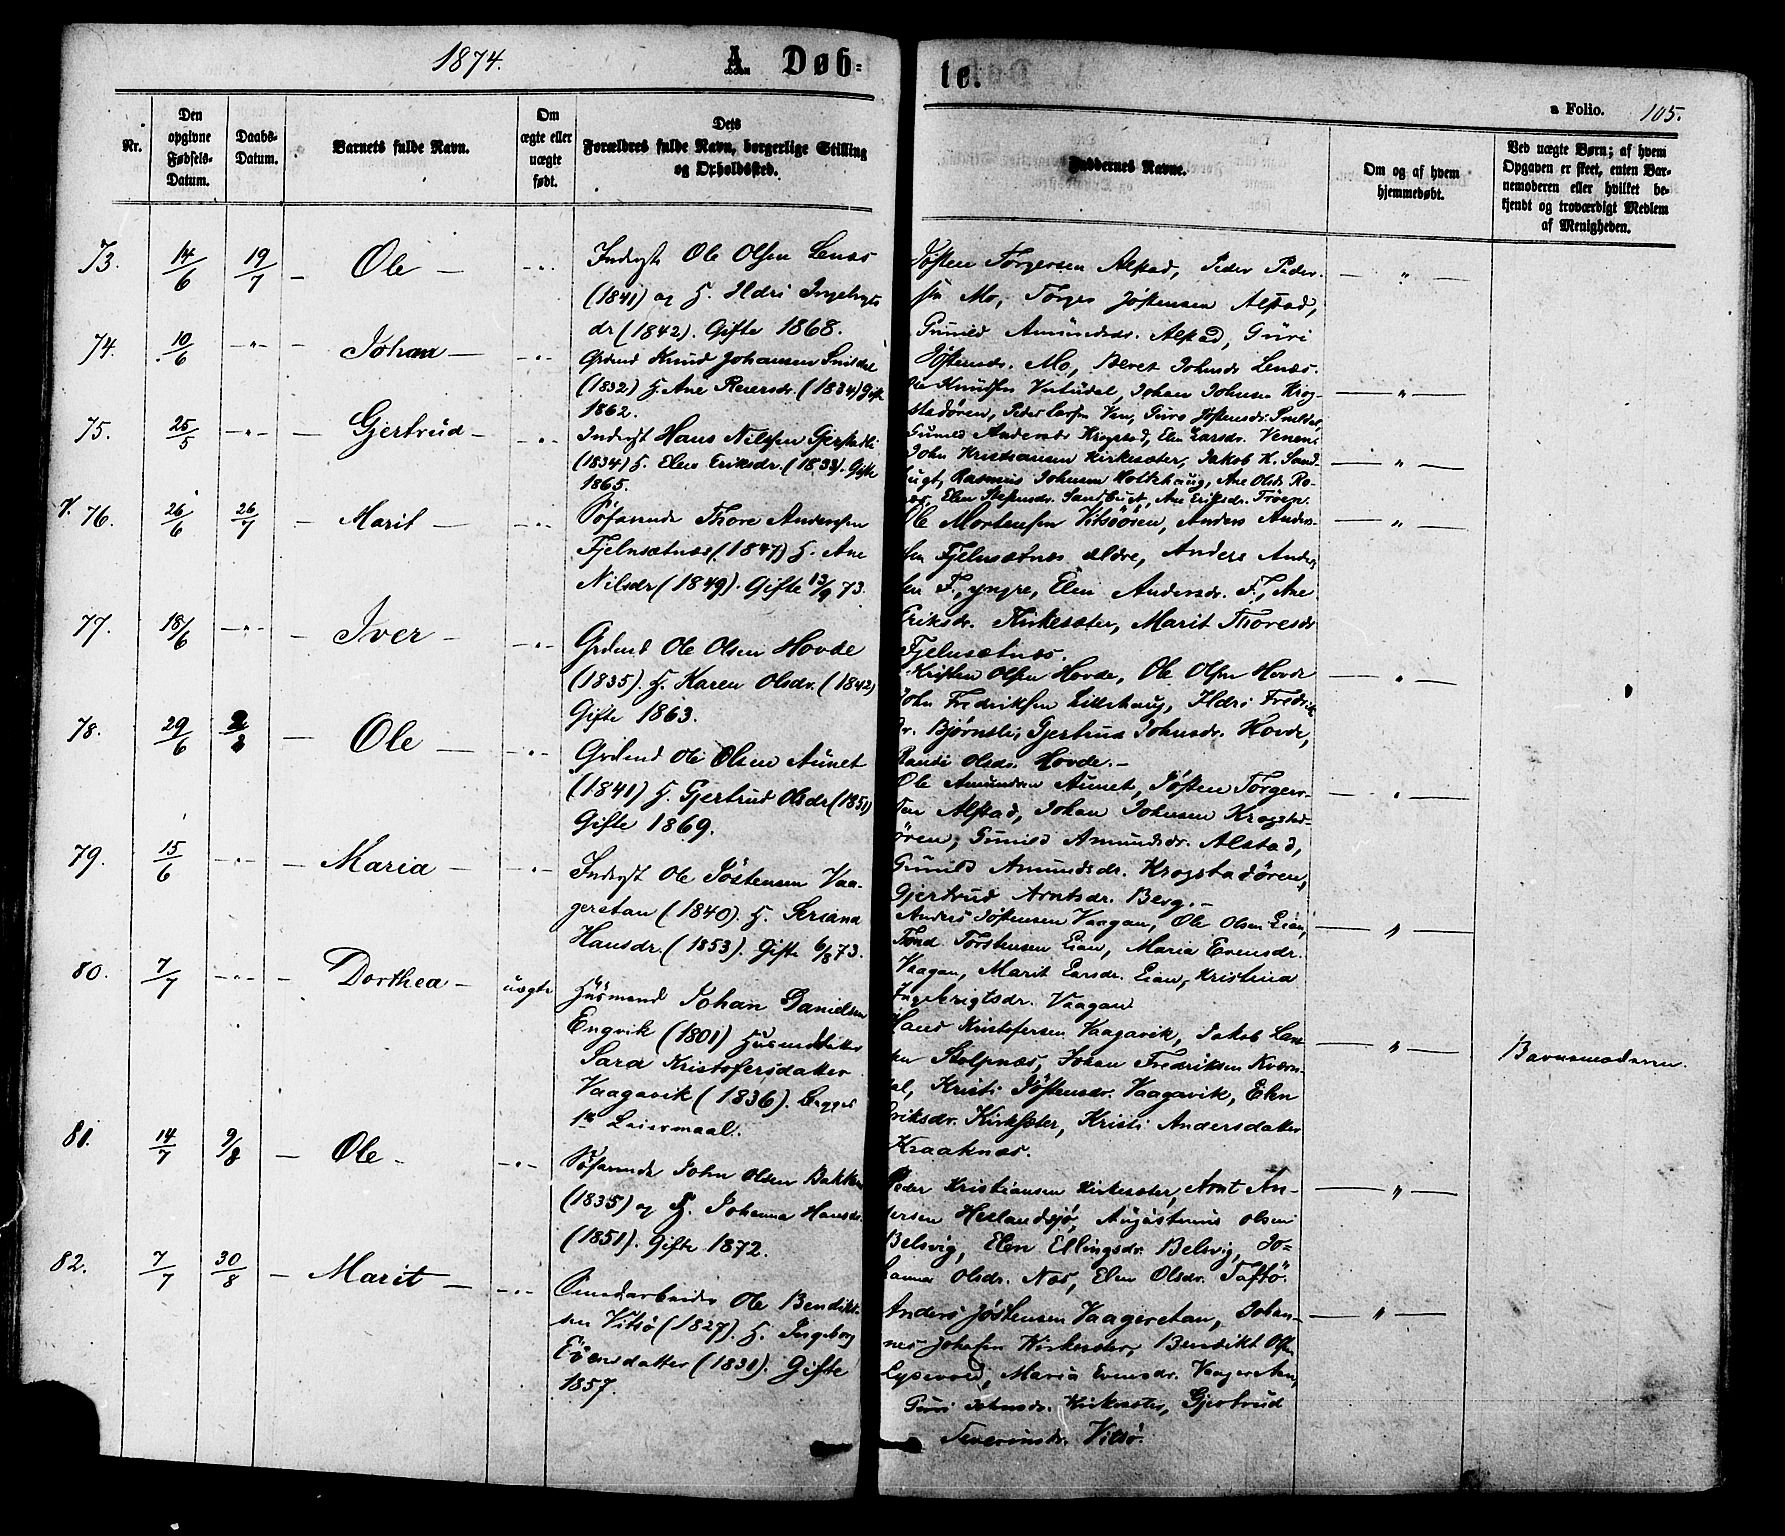 1874.
A Døb-
te.
a Folio. 105.
Nr.
Den opgivne Fødsels-Datum.
Daabs-Datum.
Barnets fulde Navn.
Om ægte eller uægte født.
Dets Forældres fulde Navn, borgerlige Stilling og Opholdssted.
Faddernes Navne.
Om og af hvem hjemmedøbt.
Ved uægte Børn; af hvem Opgaven er skeet, enten Barnemoderen eller hvilket bekjendt og troværdigt Medlem af Menigheden.
73. 14/6 19/7 – Ole – -"-
Indergst Ole Olsen Lenes
(1841) og H. Ildri Ingebrigts
dr (1842). Gifte 1868.
Jøsten Torgersen Alstad, Peder Peder-
sen Mo, Torger Jøstensen Alstad,
Gunild Amundsdr. Alstad, Guri
Jøstensdr. Mo, Beret Johnsdr Lenes.
— " —
74. 10/6 -"- Johan – -"-
Grdmd Knud Johansen Snildal
(1832) H. Ane Reiersdr. (1834) Gift
1862.
Ole Knudsen Vutudal, Johan Johnsen Krog-
stadören, Peder Larsen Ven, Guro Jøstensdr. Snildal,
Gunild Andersdr Krogstad, Elen Larsdr. Venens
— " —
75. 25/5 -"- – Gjertrud – -"-
Indergst Hans Nilsen Gjerstadli
(1834) H. Elen Eriksdr. (1833). Gifte
1865.
John Kristiansen Kirkesæter, Jakob H. Sand-
bugt, Rasmus Johnsen Holtehaug, Ane Olsdr. Ro-
Elen Stefensdr. Sandbugt, Ane Eriksdr. Trøen.
— " —
76. 26/6 26/7 – Marit – -"-
Söfarende Thore Andersen
Fjelnsætnes (1847) H. Ane
Nilsdr (1849). Gifte 13/9 73.
Ole Mortensen Vitsöören, Anders Anders-
sen Fjelnsætnes ældre, Anders Anders
sen F., yngre, Elen Andersdr. F., Ane
Eriksdr. Kirkesæter, Marit Thoresdr
Fjelnsætnes.
— " —
77. 18/6 -"- – Iver – -"-
Grdmd Ole Olsen Hovde
(1835). H. Karen Olsdr. (1842)
Gifte 1863.
Kristen Olsen Hovde, Ole Olsen Hovde
John Fredriksen Lillehaug, Ildri Fredriks
dr. Bjørnsli, Gjertrud Johnsdr. Hovde,
Randi Olsdr. Hovde. –
— " —
78. 29/6 2/8 – Ole – -"-
Grdmd Ole Olsen Aunet
(1841) H. Gjertrud Olsdr (1851)
Gifte 1869.
Ole Amundsen Aunet, Jøsten Torgers-
sen Alstad, Johan Johnsen Krogstad-
ören, Gunild Amundsdr. Alstad,
Gunild Amundsdr. Krogstadören,
Gjertrud Arntsdr. Berg. –
— " —
79. 15/6 -"- – Maria – -"-
Indergst Ole Jöstensen Vaa-
geretan (1840). H. Seriana
Hansdr. (1853). Gifte 6/8 73.
Anders Jøstensen Vaagan, Ole Olsen Eian,
Trond Torstensen Eian, Maria Evensdr.
Vaagan, Marit Larsdr. Eian, Kristina
Ingebrigtsdr. Vaagan
— " —
80. 7/7 -"- – Dorthea – uægte
Husmand Johan Danielsen
Engvik (1801) Husmdsdatter
Sara Kristofersdatter
Vaagavik (1836). Begges
1ste Leiermaal.
Hans Kristofersen Vaagavik, Jakob Lar-
sen Stolpnæs, Johan Fredriksen Kværn-
dal, Kristi Jöstensdr. Vaagavik, Elen
Eriksdr. Kirksæter, Kristi Andersdatter
Kraaknæs.
— " —
Barnemoderen.
81. 14/7 9/8 – Ole – -"-
Söfarende John Olsen Bakken
(1835) og H. Johanna Hansdr.
(1851). Gifte 1872.
Peder Kristiansen Kirkesæter, Arnt An-
dersen Heslandsjö, Augustinus Olsen
Belsvig, Elen Ellingsdr. Belsvig, Jo-
hanna Olsdr. Nes, Elen Olsdr. Taftö.
— " —
82. 7/7 30/8 – Marit – -"-
Smedarbeider Ole Bendikt-
sen Vitsö (1827). H. Ingeborg
Evensdatter (1831). Gifte
1857.
Anders Jöstensen Vaageretan, Johan-
nes Johnsen Kirkesæter, Bendikt Olsen
Lysevold, Maria Evensdr. Vaageretan,
Guri Johnsdr. Kirkesæter, Gjertrud
Severinsdr. Vitsö.
— " —